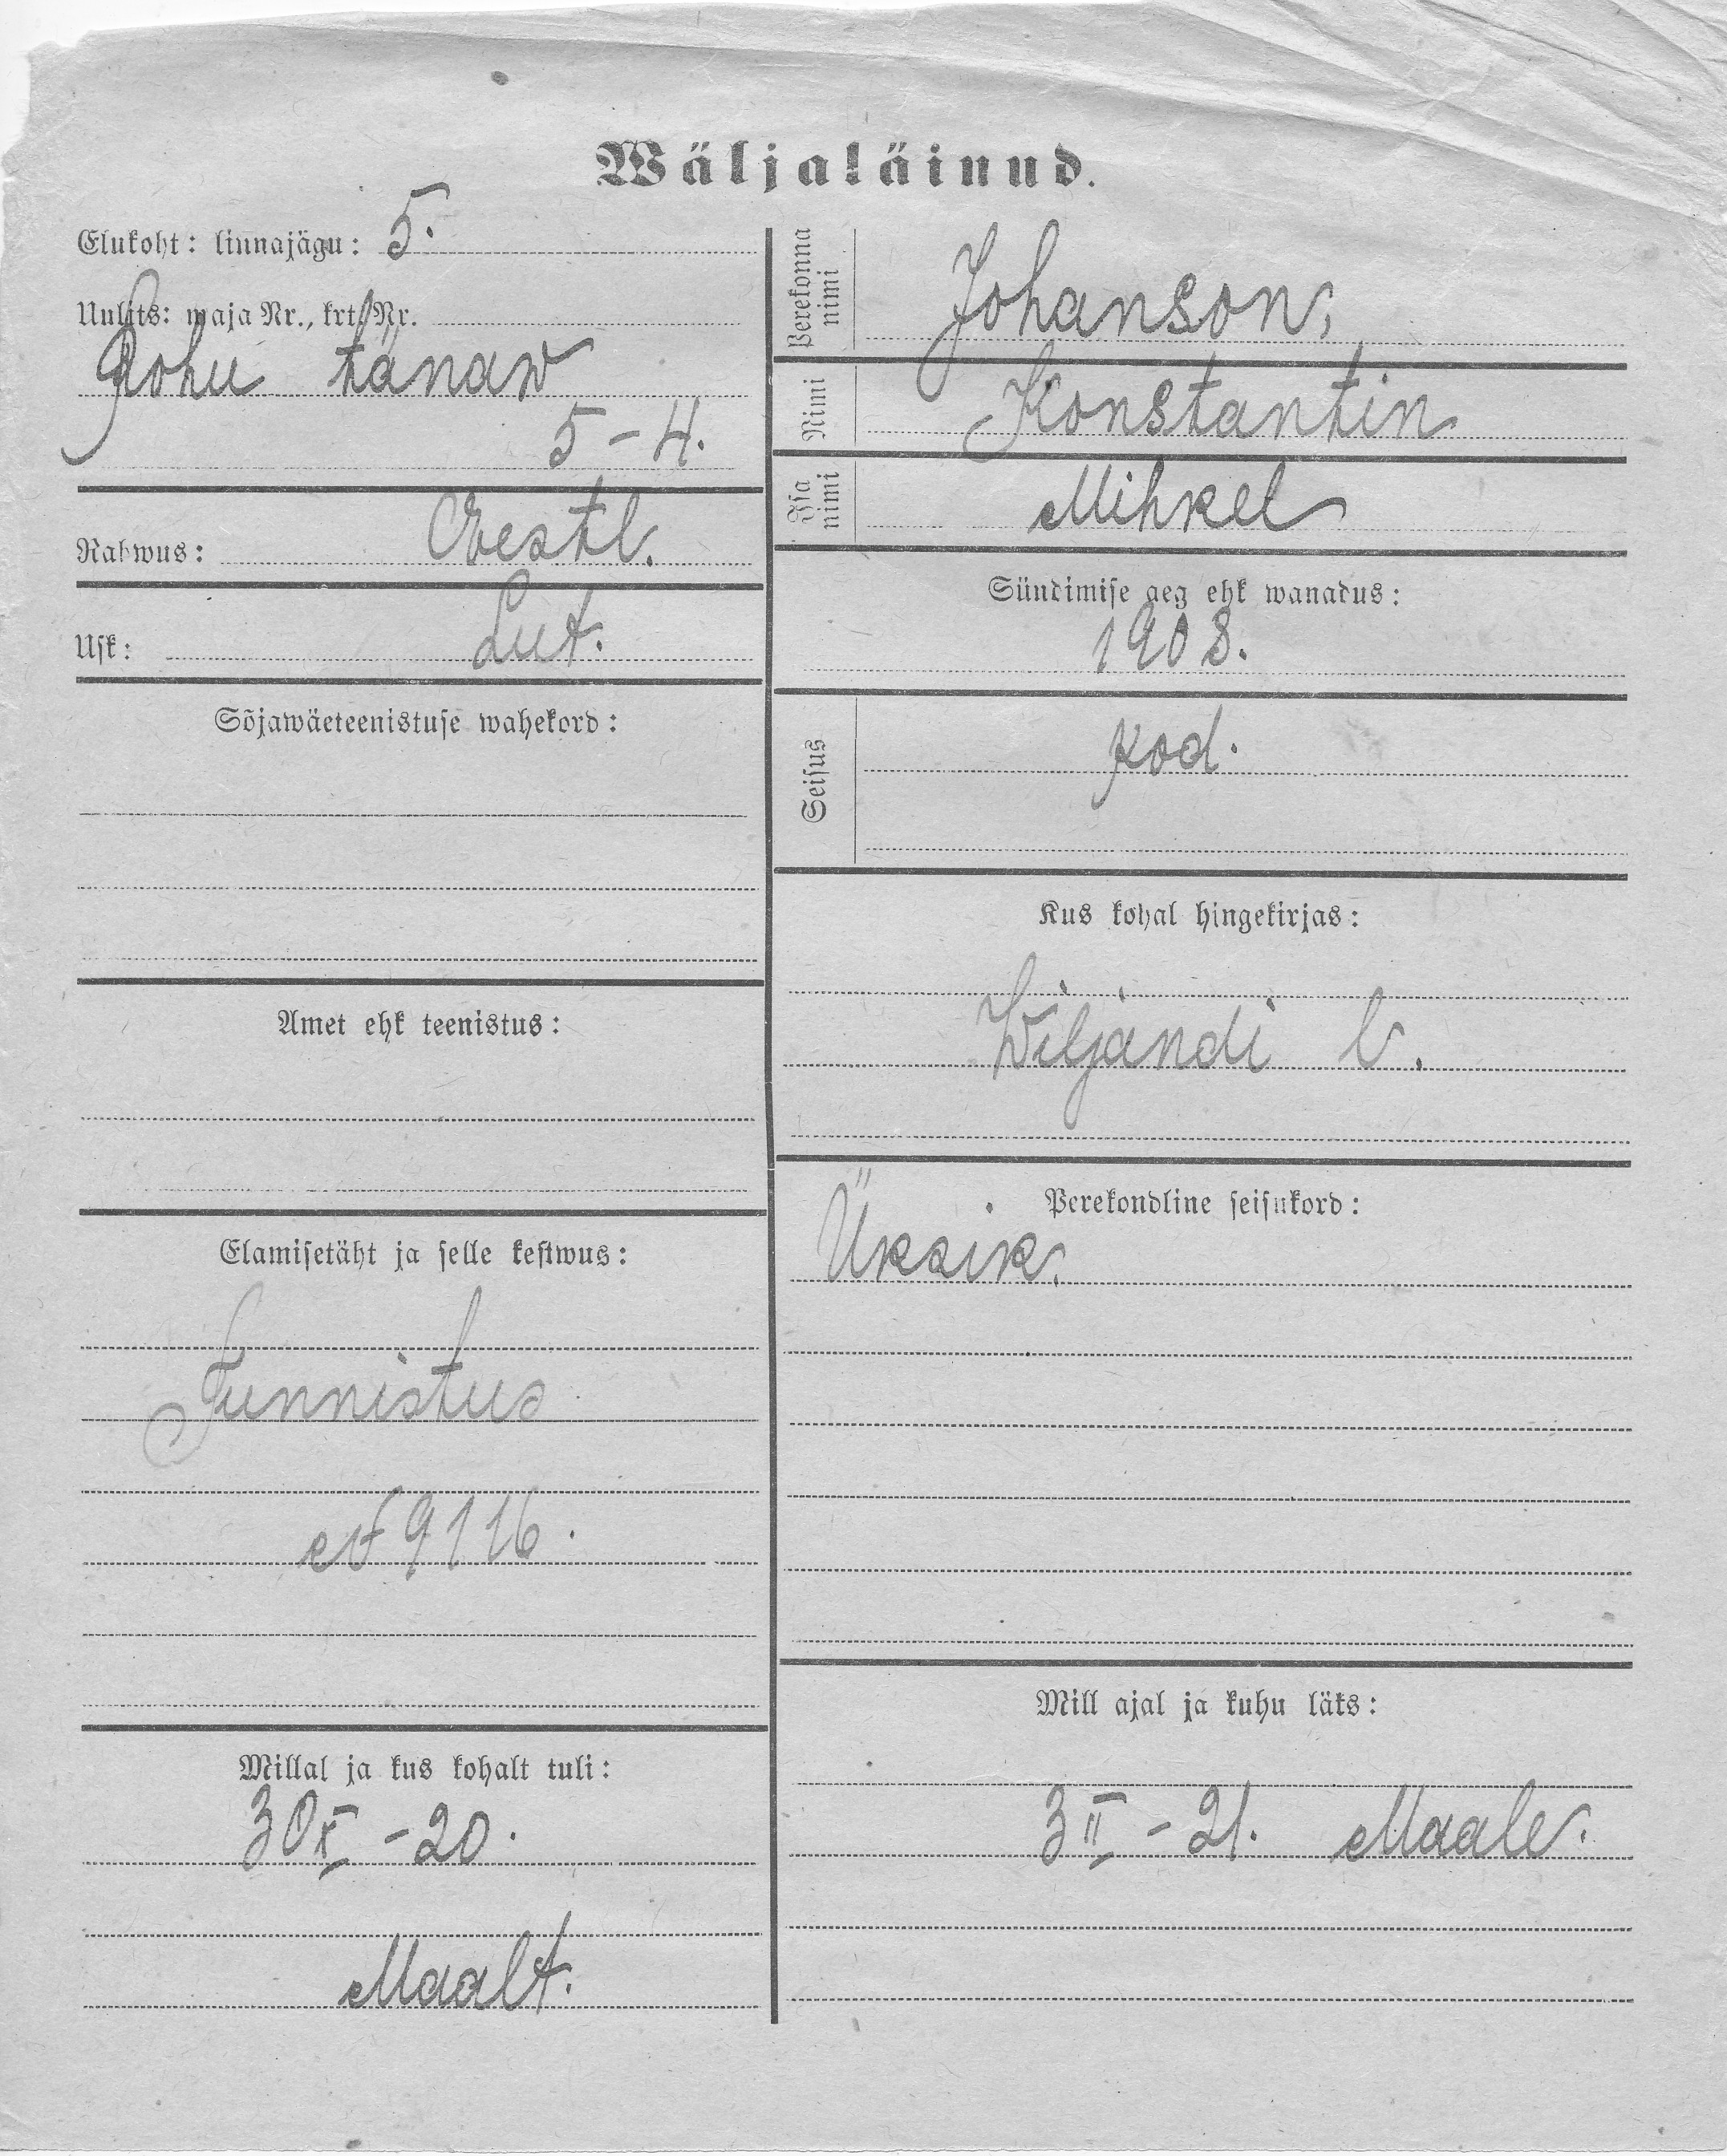 Wäljaläinud.
Elukoht: linnajägu: 5.
Uulits: maja Nr., krt. Nr.
Rohu tänaw
5-4.
Rahwus: Eestl.
Usk: Lut.
Sõjawäeteenistuse wahekord:
Amet ehk teenistus:
Elamisetäht ja selle kestwus:
Tunnistus
№ 9116.
Millal ja kus kohalt tuli:
30 X -20.
Maalt.
Perekonna nimi
Johanson,
Nimi
Konstantin
Isa nimi
Mihkel
Sündimise aeg ehk wanadus:
1908.
Seisus
kod.
Kus kohal hingekirjas:
Wiljandi l.
Perekondline seisukord:
Üksik.
Mill ajal ja kuhu läks:
3 II -21. Maale.